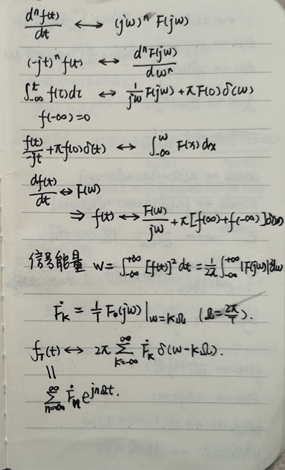 dⁿf(t)/dt ↔ (jw)ⁿ F(jw)
(-jt)ⁿ f(t) ↔ dⁿF(jw)/dwⁿ
∫_{-∞}^{t} f(τ)dτ ↔ 1/jw F(jw) + πF(0)δ(w)
f(-∞)=0
f(t)/-jt + πf(0)δ(t) ↔ ∫_{-∞}^{w} F(x)dx
df(t)/dt ↔ F(w)
⇒ f(t) ↔ F(w)/jw + π[f(∞)+f(-∞)]δ(w)
信号能量 W=∫_{-∞}^{+∞} [f(t)]² dt = 1/2π ∫_{-∞}^{+∞} |F(jw)|²dw
Ḟₖ = 1/T F₀(jw)|_{w=kΩ} (Ω=2π/T).
f_T(t) ↔ 2π Σ_{k=-∞}^{∞} Ḟₖ δ(w-kΩ).
||
Σ_{n=-∞}^{∞} Ḟₙ e^{jnΩt}.